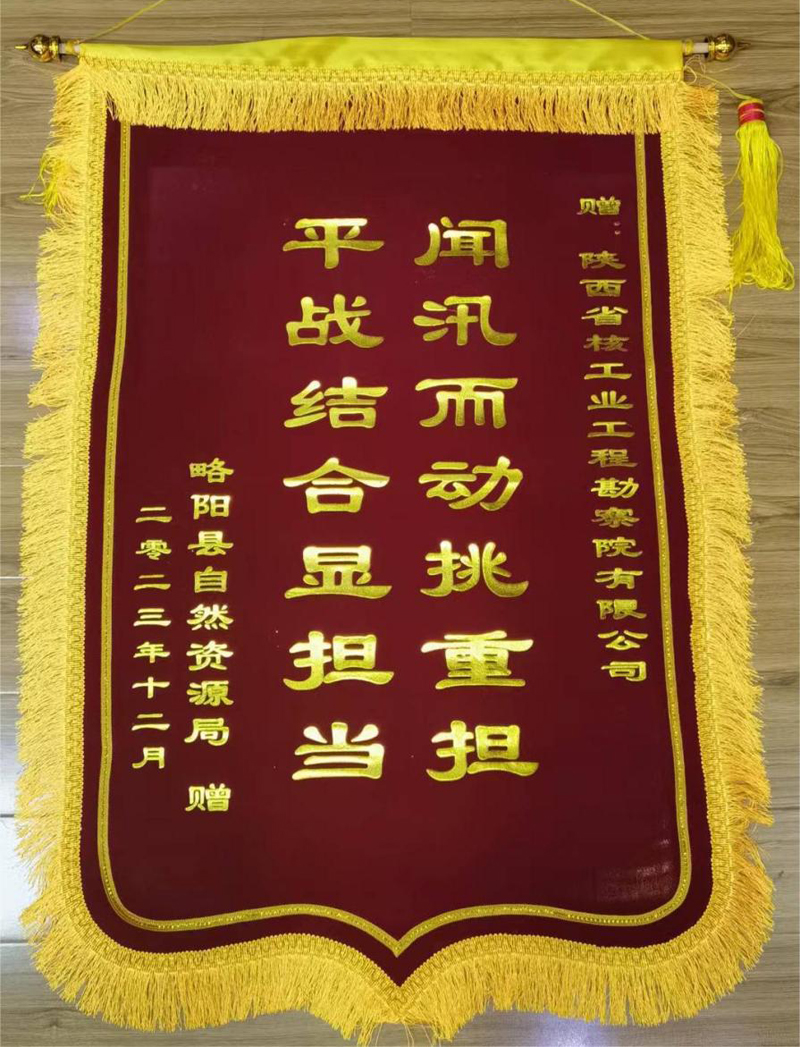 赠：陕西省核工业工程勘察院有限公司
闻汛而动挑重担
平战结合显担当
略阳县自然资源局 赠
二零二三年十二月